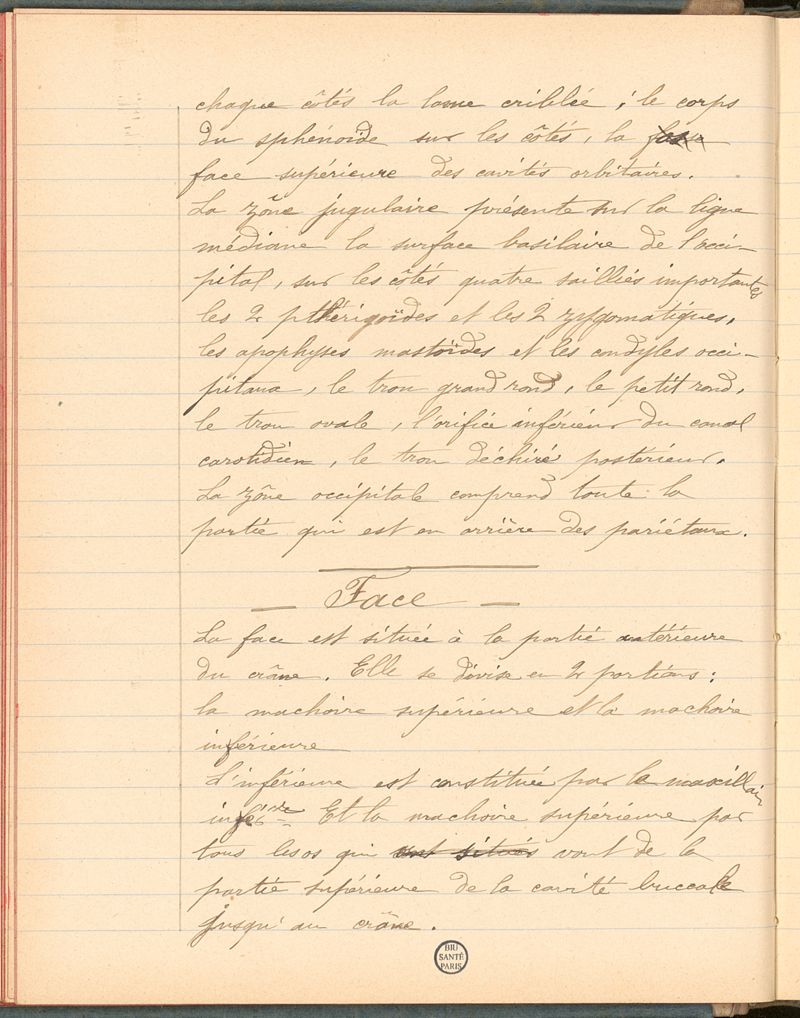 chaque côtés la lame criblée ; le corps
du sphénoïde sur les côtés, la
face supérieure des cavités orbitaires.
La zône jugulaire présente sur la ligne
médiane la surface basilaire de l'occi-
pital, sur les côtés quatre sailliés importantes
les 2 pthérigoïdes et les 2 zygomatiques,
les apophyses mastoïdes et les condyles occi-
pitaux, le trou grand rond, le petit rond,
le trou ovale, l'orifice inférieur du canal
carotidien, le trou déchiré postérieur.
La zône occipitale comprend toute la
partie qui est en arrière des pariétaux.
— Face —
La face est située à la partie antérieure
du crâne. Elle se divise en 2 portions :
la machoire supérieure et la machoire
inférieure
L'inférieure est constituée par le maxillair
infére Et la machoire supérieure par
tous les os qui sont situés vont de la
partie supérieure de la cavité buccale
jusqu'au crâne.
BIU
SANTÉ
PARIS